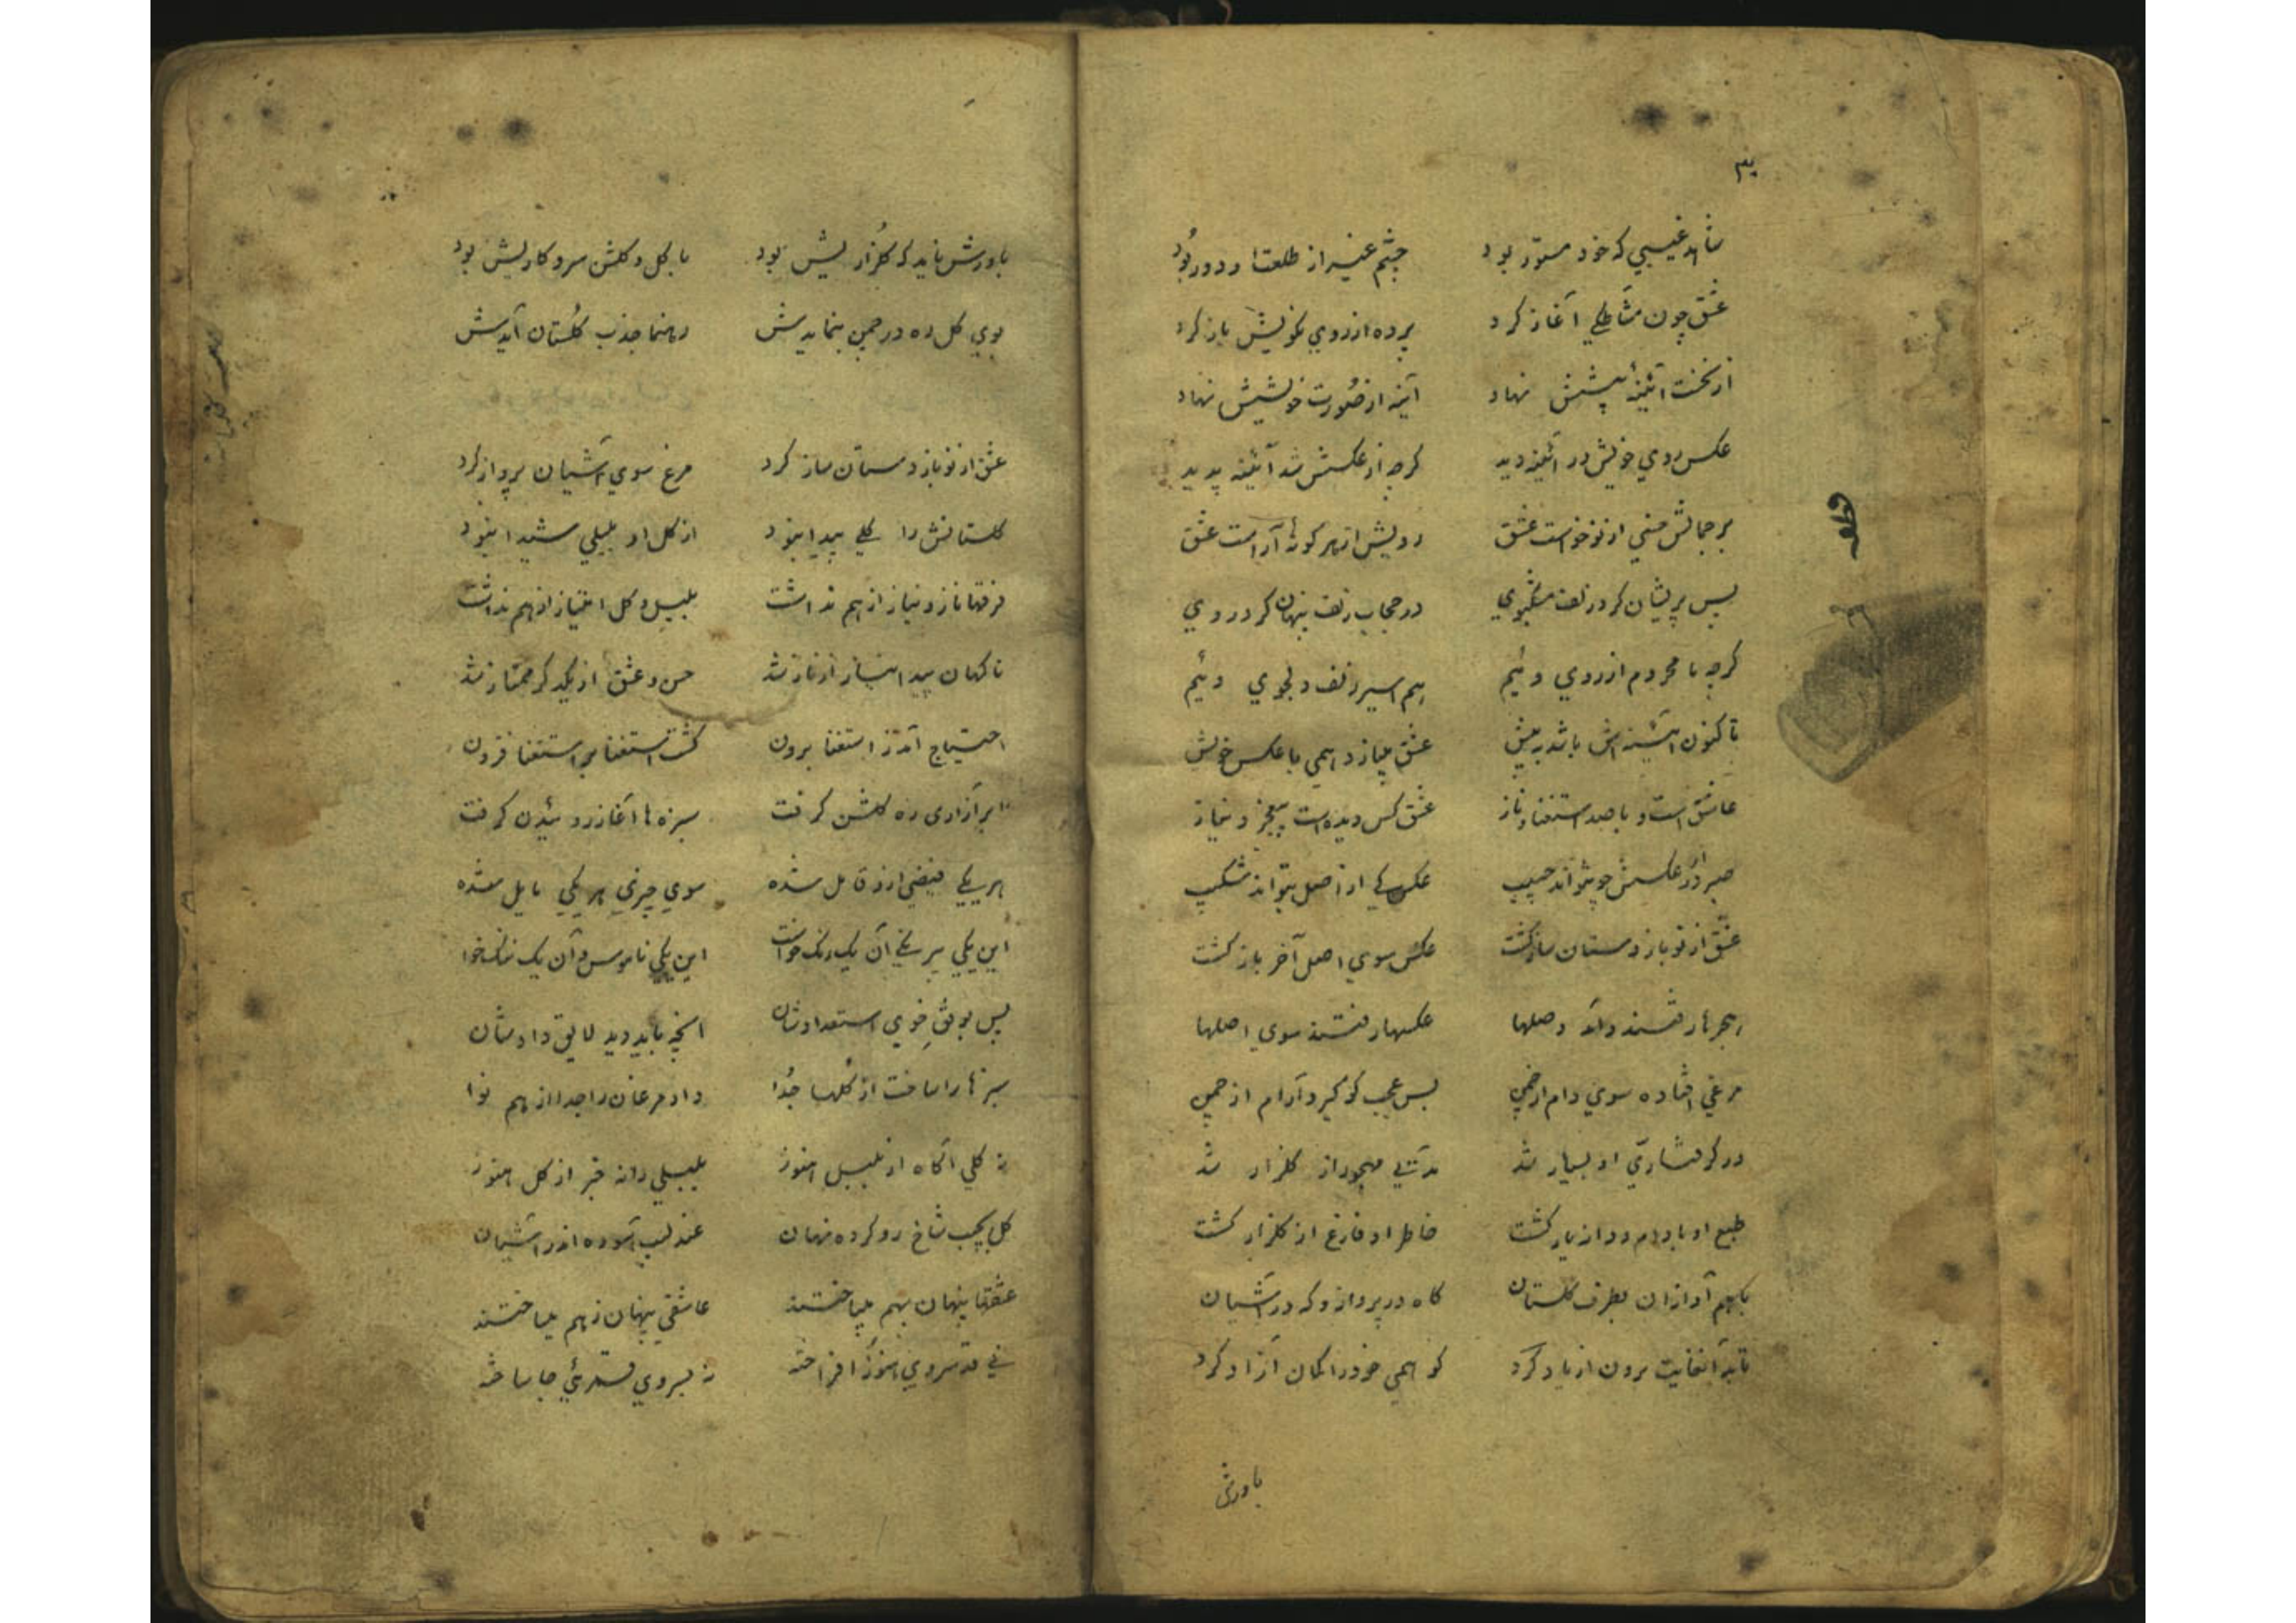 ۳
شاهد غیبی که خود مستور بود چشم غیر از طلعت او دور بُود
عشق چون مشاطکی آغاز کرد پرده از روی نکویش باز کرد
از نخست آئینهٔ پیشش نهاد آینه از صُورت خویشش نهاد
عکس روی خویش در آئینه دید کرچه از عکسش شد آئینه پدید
بر جمالش حسنی از نو خواست عشق رویش از هر کونهٔ آراست عشق
پس پریشان کرد زلف مشکبوی در حجاب زلف پنهان کرد روی
کرچه نامحروم از روی وئیم هم اسیر زلف دلجوی وئیم
تا کنون آئینه اش باشد به پیش عشق میبازد همی با عکس خویش
عاشق است و با صد استغنا و ناز عشق کس دیده است بیعجز و نیاز
صبر از عکسش چو نتواند حبیب عکس کی از اصل بتواند شکیب
عشق از نو باز دستان ساز کشت عکس سوی اصل آخر باز کشت
هجرها رفتند و آمد وصلها عکسها رفتند سوی اصلها
مرغی افتاده سوی دام از چمن بس عجب کو کیرد آرام از چمن
در کرفتاری او بسیار شد مدتی مهجور از کلزار شد
طبع او با دام و دانه یار کشت خاطر او فارغ از کلزار کشت
باهم آوازان بطرف کلستان کاه در پرواز و که در آشیان
تا بدآنغایت برون از یاد کرد کو همی خود را کمان آزاد کرد
باورش
باورش ناید که کلزاریش بود با کل و کلشن سر و کاریش بود
بوی کل ره در چمن بنمایدش رهنما جذب کلستان آیدش
عشق از نو باز دستان ساز کرد مرغ سوی آشیان پرواز کرد
کلستانش را کلی پیدا نبود از کل او بلبلی شیدا نبود
فرقها ناز و نیاز از هم نداشت بلبل و کل امتیاز از هم نداشت
ناکهان پیدا نیاز از ناز شد حسن و عشق از یکدکر ممتاز شد
احتیاج آمد ز استغنا برون کشت استغنا بر استغنا فزون
ابر آزاری ره کلشن کرفت سبزه ها آغاز روئیدن کرفت
هر یکی فیضی از او قابل شده سوی چیزی هر یکی مایل شده
این یکی بیرنکی آن یک رنک خواست این یکی ناموس و آن یک ننک خوا
پس بوفق خوی استعدادشان انچه باید دید لایق دادشان
سبزها را ساخت از کُلها جُدا داد مرغان را جدا از هم نوا
نه کلی آکاه از بلبل هنوز بلبلی را نه خبر از کل هنوز
کل بجیب شاخ رو کرده نهان عندلیب آسوده اندر آشیان
عشقها پنهان بهم میباختند عاشقی پنهان ز هم میساختند
نی قد سروی هنوز افراخته نه بسروی قمرئی جا ساخته